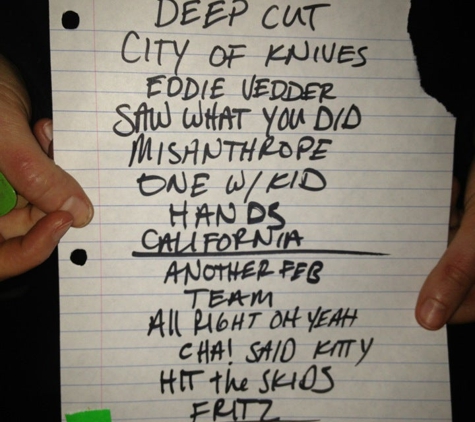 DEEP CUT
CITY OF KNIVES
EDDIE VEDDER
SAW WHAT YOU DID
MISANTHROPE
ONE W/ KID
HANDS
CALIFORNIA
ANOTHER FEB
TEAM
All RIGHT OH YEAH
CHA! SAID KITTY
HIT the SKIDS
FRITZ